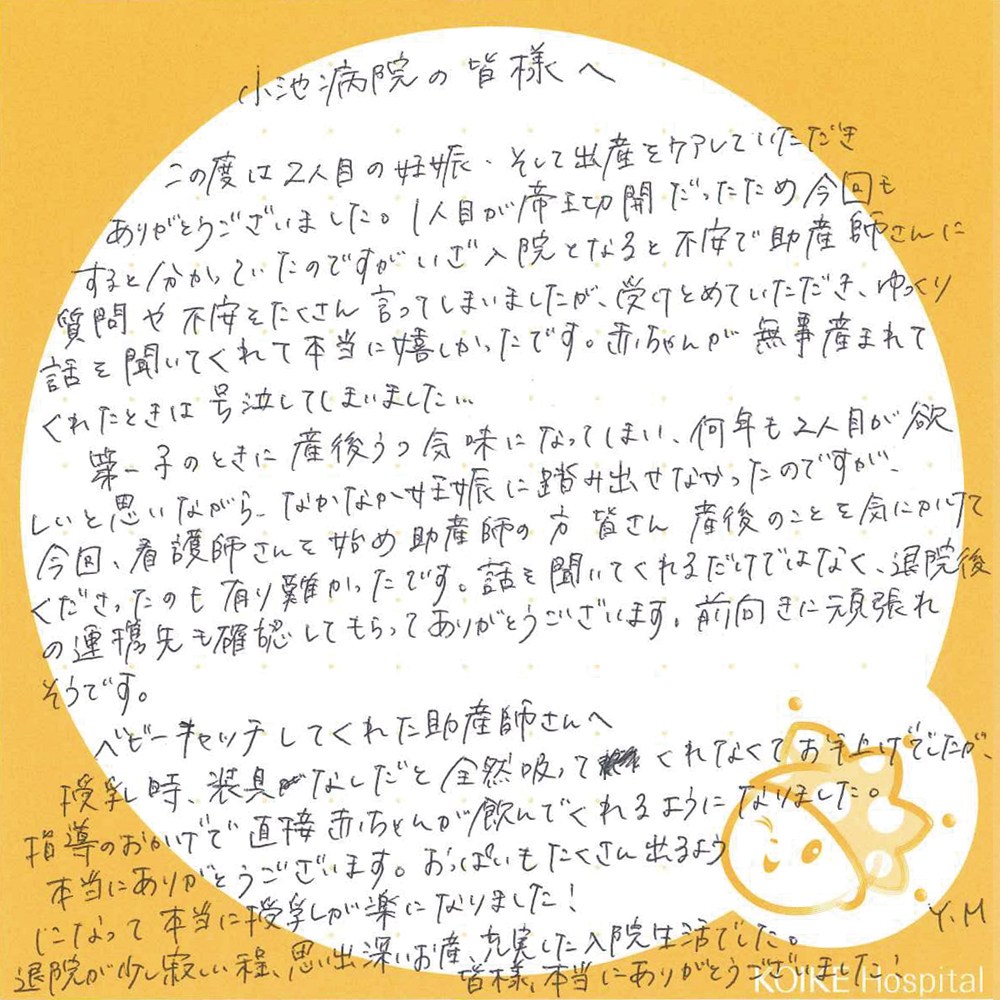 小池病院の皆様へ
この度は2人目の妊娠、そして出産をケアしていただき
ありがとうございました。1人目が帝王切開だったため今回も
すると分かっていたのですがいざ入院となると不安で助産師さんに
質問や不安をたくさん言ってしまいましたが、受けとめていただき、ゆっくり
話を聞いてくれて本当に嬉しかったです。赤ちゃんが無事産まれて
くれたときは号泣してしまいました…
第一子のときに産後うつ気味になってしまい、何年も2人目が欲
しいと思いながら、なかなか妊娠に踏み出せなかったのですが、
今回、看護師さんを始め助産師の方皆さん産後のことを気にかけて
くださったのも有り難かったです。話を聞いてくれるだけではなく、退院後
の連携先も確認してもらってありがとうございます。前向きに頑張れ
そうです。
ベビーキャッチしてくれた助産師さんへ
授乳時、装具なしだと全然吸ってくれなくてお手上げでしたが、
指導のおかげで直接赤ちゃんが飲んでくれるようになりました。
本当にありがとうございます。おっぱいもたくさん出るよう
になって本当に授乳しが楽になりました!
退院が少し寂しい程、思い出深いお産、充実した入院生活でした。
皆様、本当にありがとうございました!
Y.M
KOIKE Hospital